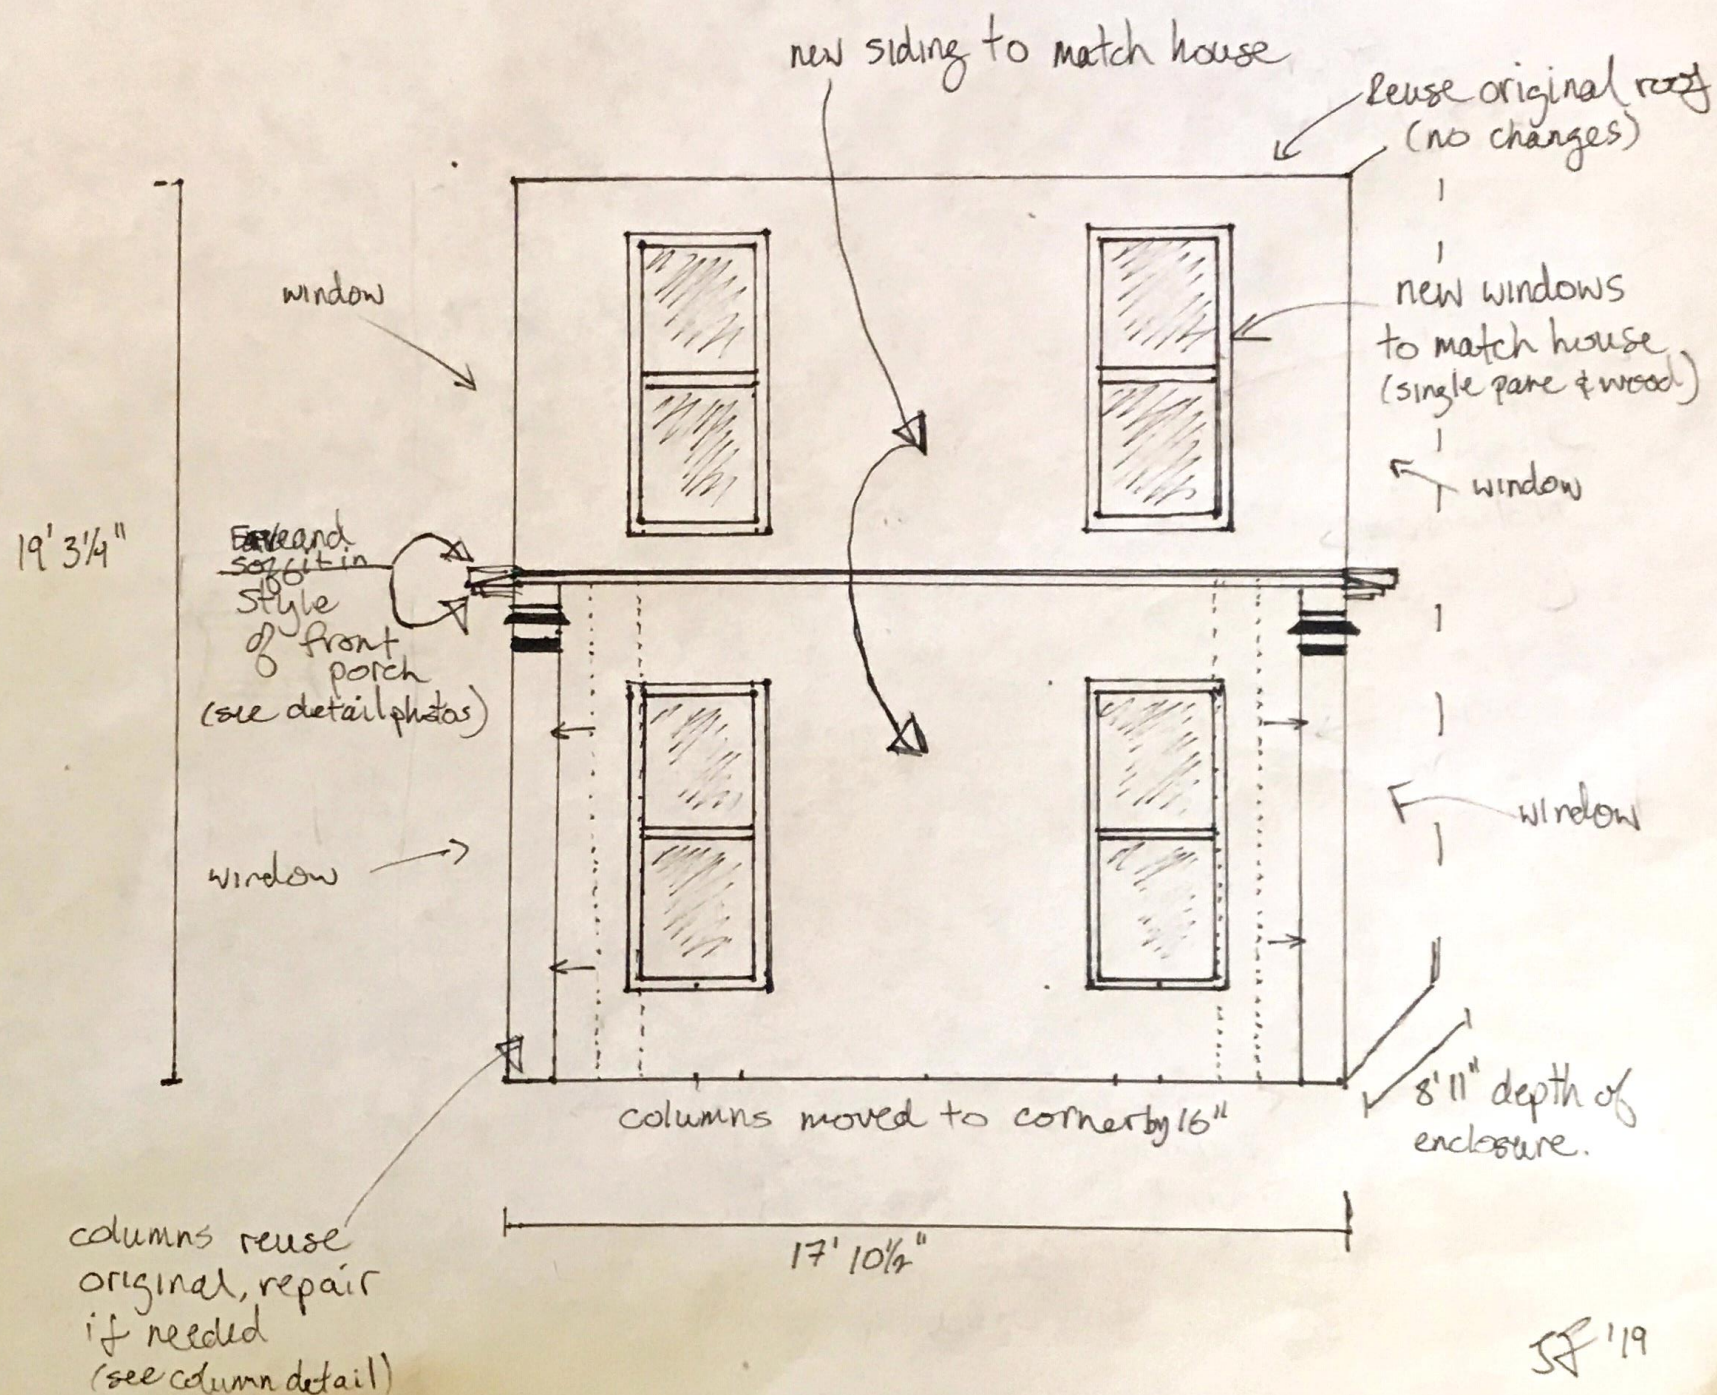 new siding to match house
Reuse original roof
(no changes)
window
new windows
to match house
(single pane & wood)
window
19' 3¼"
Eave and
soffit in
style
of front
porch
(see detail photos)
window
window
columns moved to corner by 16"
8'11" depth of
enclosure.
17' 10½"
columns reuse
original, repair
if needed
(see column detail)
JF '19